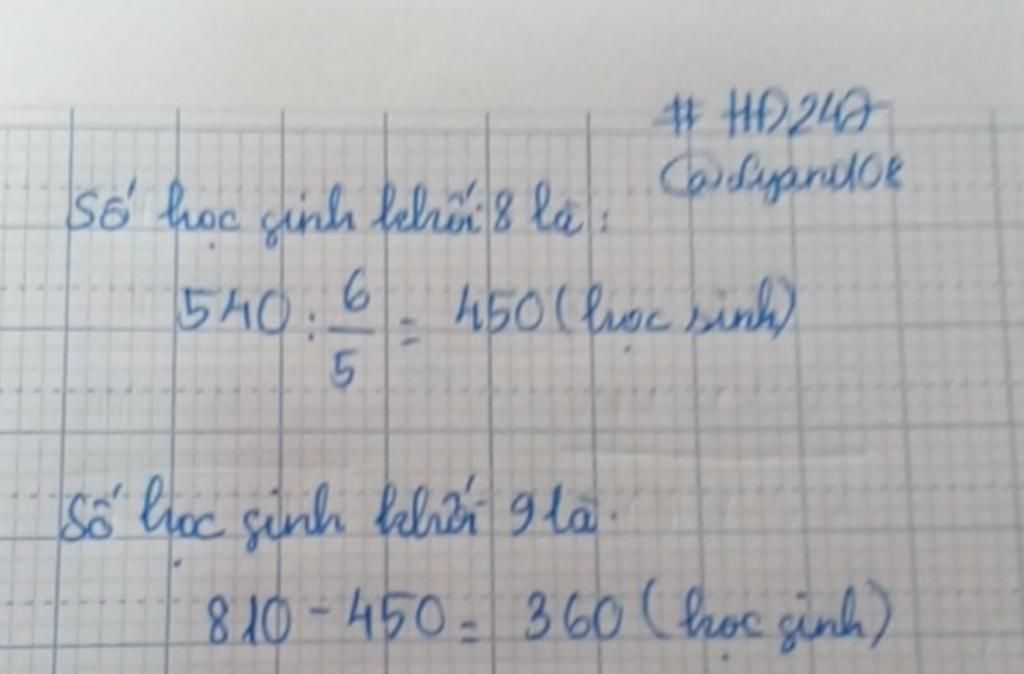 # HĐ247
Số học sinh khối 8 là:
540 : 6/5 = 450 (học sinh)
Số học sinh khối 9 là.
810 - 450 = 360 (học sinh)